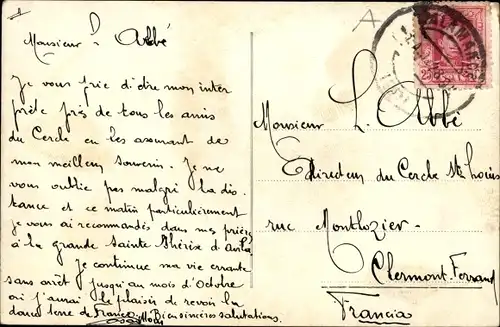 Monsieur l'Abbé
Je vous prie d'être mon inter
prète près de tous les amis
du Cercle en les assurant de
mon meilleur souvenir. Je ne
vous oublie pas malgré la dis
tance et ce matin particulièrement
je vous ai recommandés dans mes prières
à la grande Sainte Thérèse d'Avila
Je continue ma vie errante
sans arrêt jusqu'au mois d'Octobre
où j'aurai le plaisir de revoir la
douce terre de France. Bien sincères salutations.
Monsieur L'Abbé
Directeur du Cercle St Louis
rue Montlozier
Clermont-Ferrand
Francia
25